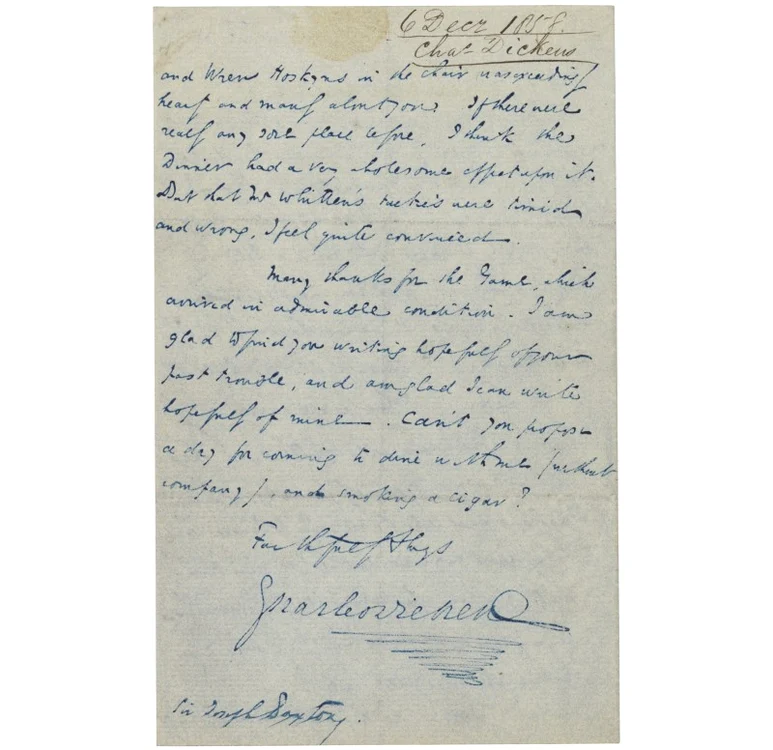 6 Decr 1858.
Chas Dickens
and Wren Hoskyns in the chair was exceedingly
hearty and manly about you. If there were
really any sore place before, I think the
Dinner had a very wholesome effect upon it.
But that Mr Whitten's were timid
and wrong, I feel quite convinced.
Many thanks for the Game, which
arrived in admirable condition. I am
glad to find you writing hopefully of your
past trouble, and am glad I can write
hopefully of mine. Can't you propose
a day for coming to dine with me (without
company), and smoking a cigar?
Faithfully Always
Charles Dickens
Sir Joseph Paxton.